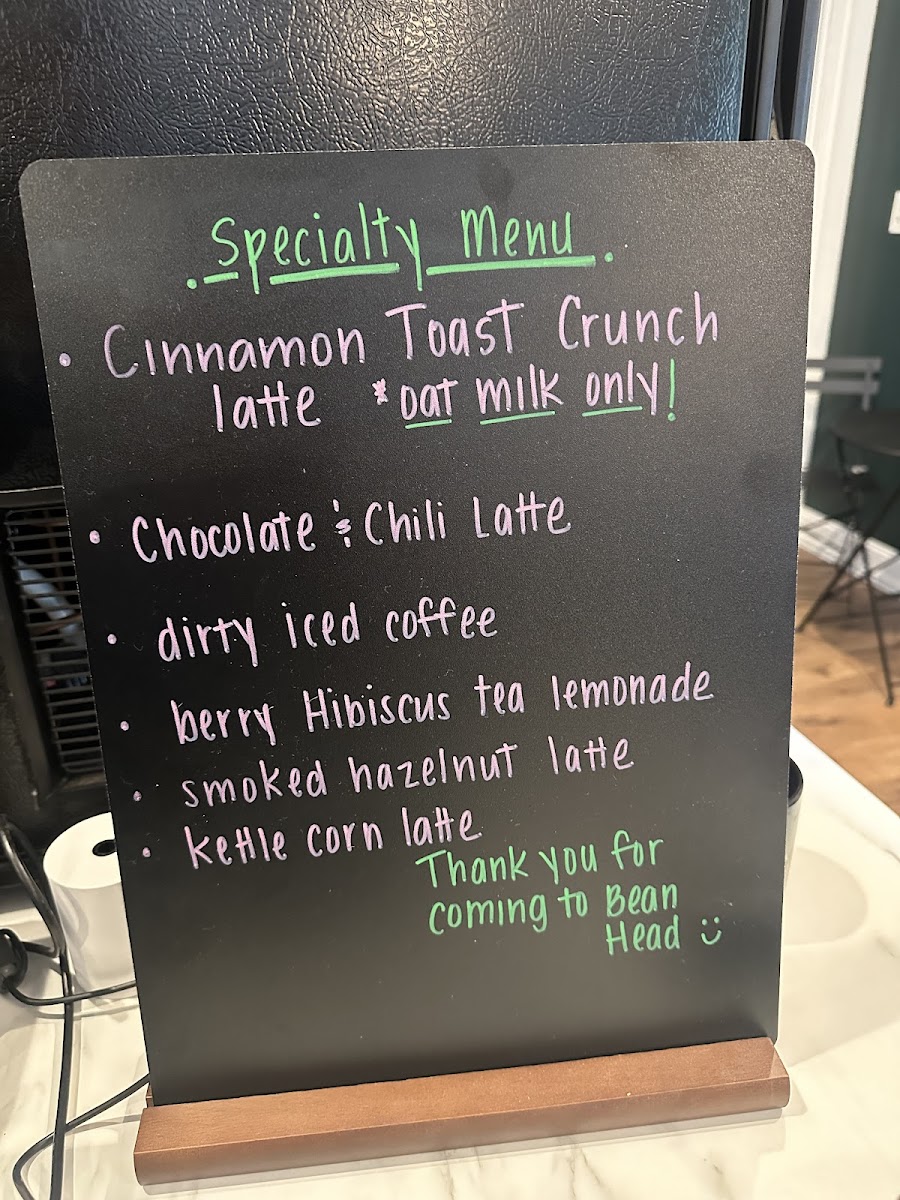 . Specialty Menu .
• Cinnamon Toast Crunch
latte *oat milk only!
• Chocolate & Chili Latte
• dirty iced coffee
• berry Hibiscus tea lemonade
• smoked hazelnut latte
• kettle corn latte
Thank you for
coming to Bean
Head :)